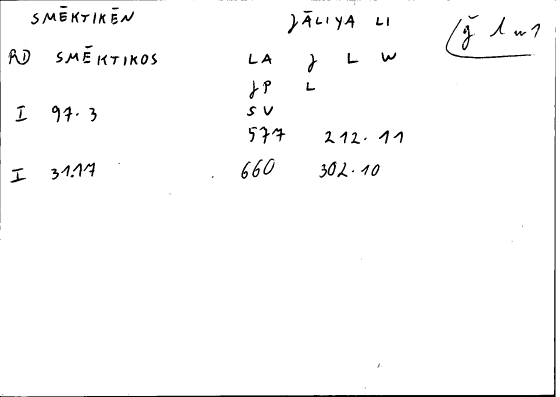 SMĒKTIKĒN JĀLIYA LI (ǧ l w 1
RD SMĒKTIKOS LA J L W
JP L
I 97.3 SV
577 212.11
I 31.17 660 302.10